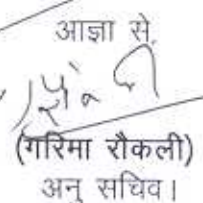 आज्ञा से,
(गरिमा रौकली)
अनु सचिव।